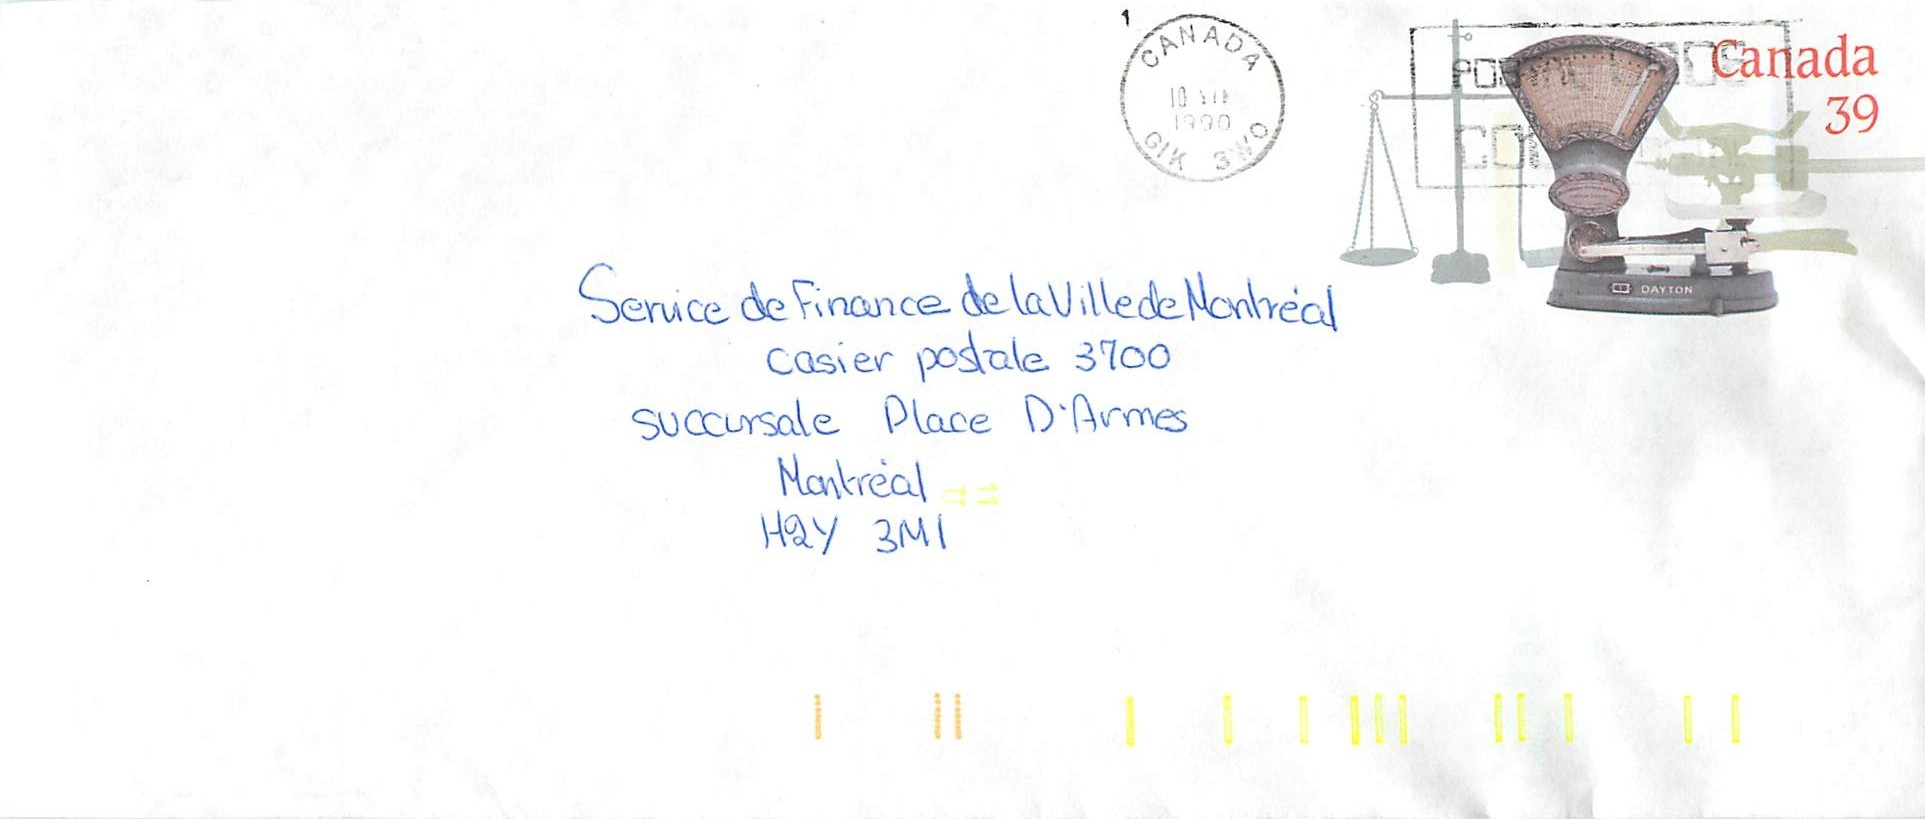 CANADA
10 VII
1990
G1K 3W0
Canada
39
DAYTON
Service de Finance de la Ville de Montréal
casier postale 3700
succursale Place D'Armes
Montréal
H2Y 3M1